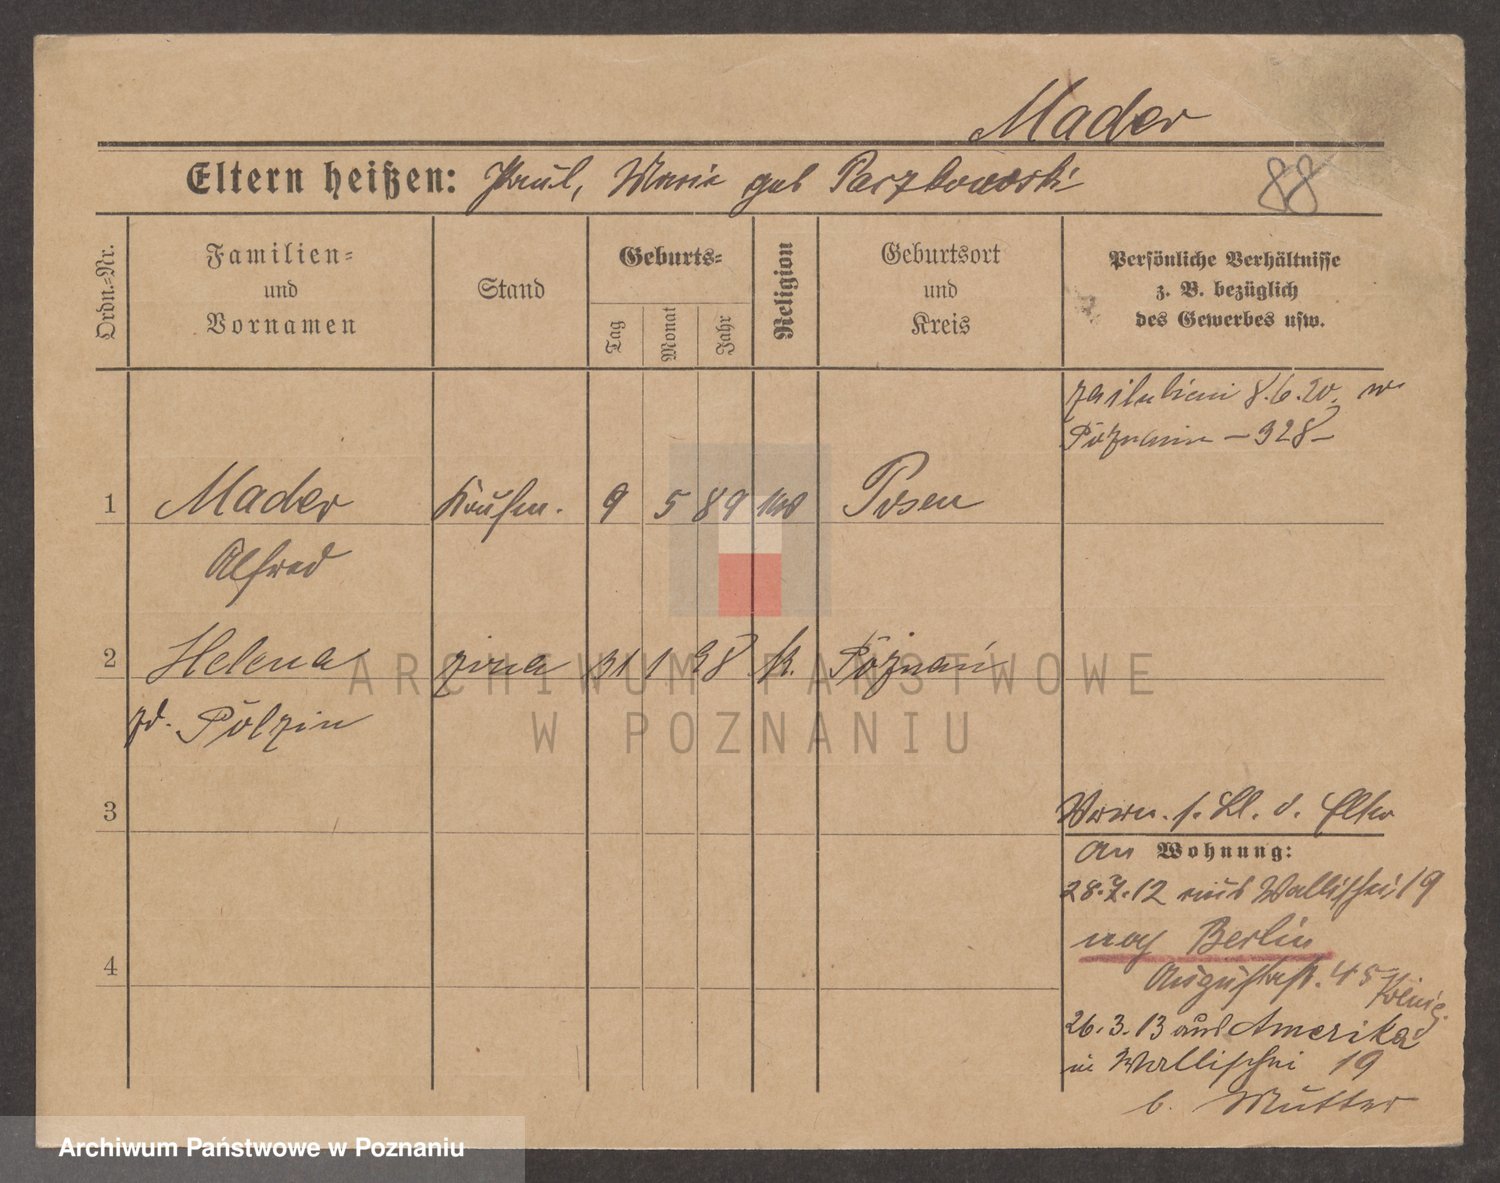 Mader
Eltern heißen: Paul, Marie geb Paczkowski
88
Ordn.=Nr.
Familien=
und
Vornamen
Stand
Geburts=
Tag
Monat
Jahr
Religion
Geburtsort
und
Kreis
Persönliche Verhältnisse
z. B. bezüglich
des Gewerbes usw.
zaślubieni 8.6.20. w
Poznaniu – 328 –
1 Mader Kaufm. 9 5 89 Posen
Alfred
2 Helena żona 31 1 98 k. Poznań
zd. Polzin
3
s. Bl. d. Elter
an Wohnung:
28.7.12 aus Wallischei 19
nach Berlin
Augustastr. 45
König.
26.3.13 aus Amerika
in Wallischei 19
b. Mutter
4
ARCHIWUM PAŃSTWOWE
W POZNANIU
Archiwum Państwowe w Poznaniu